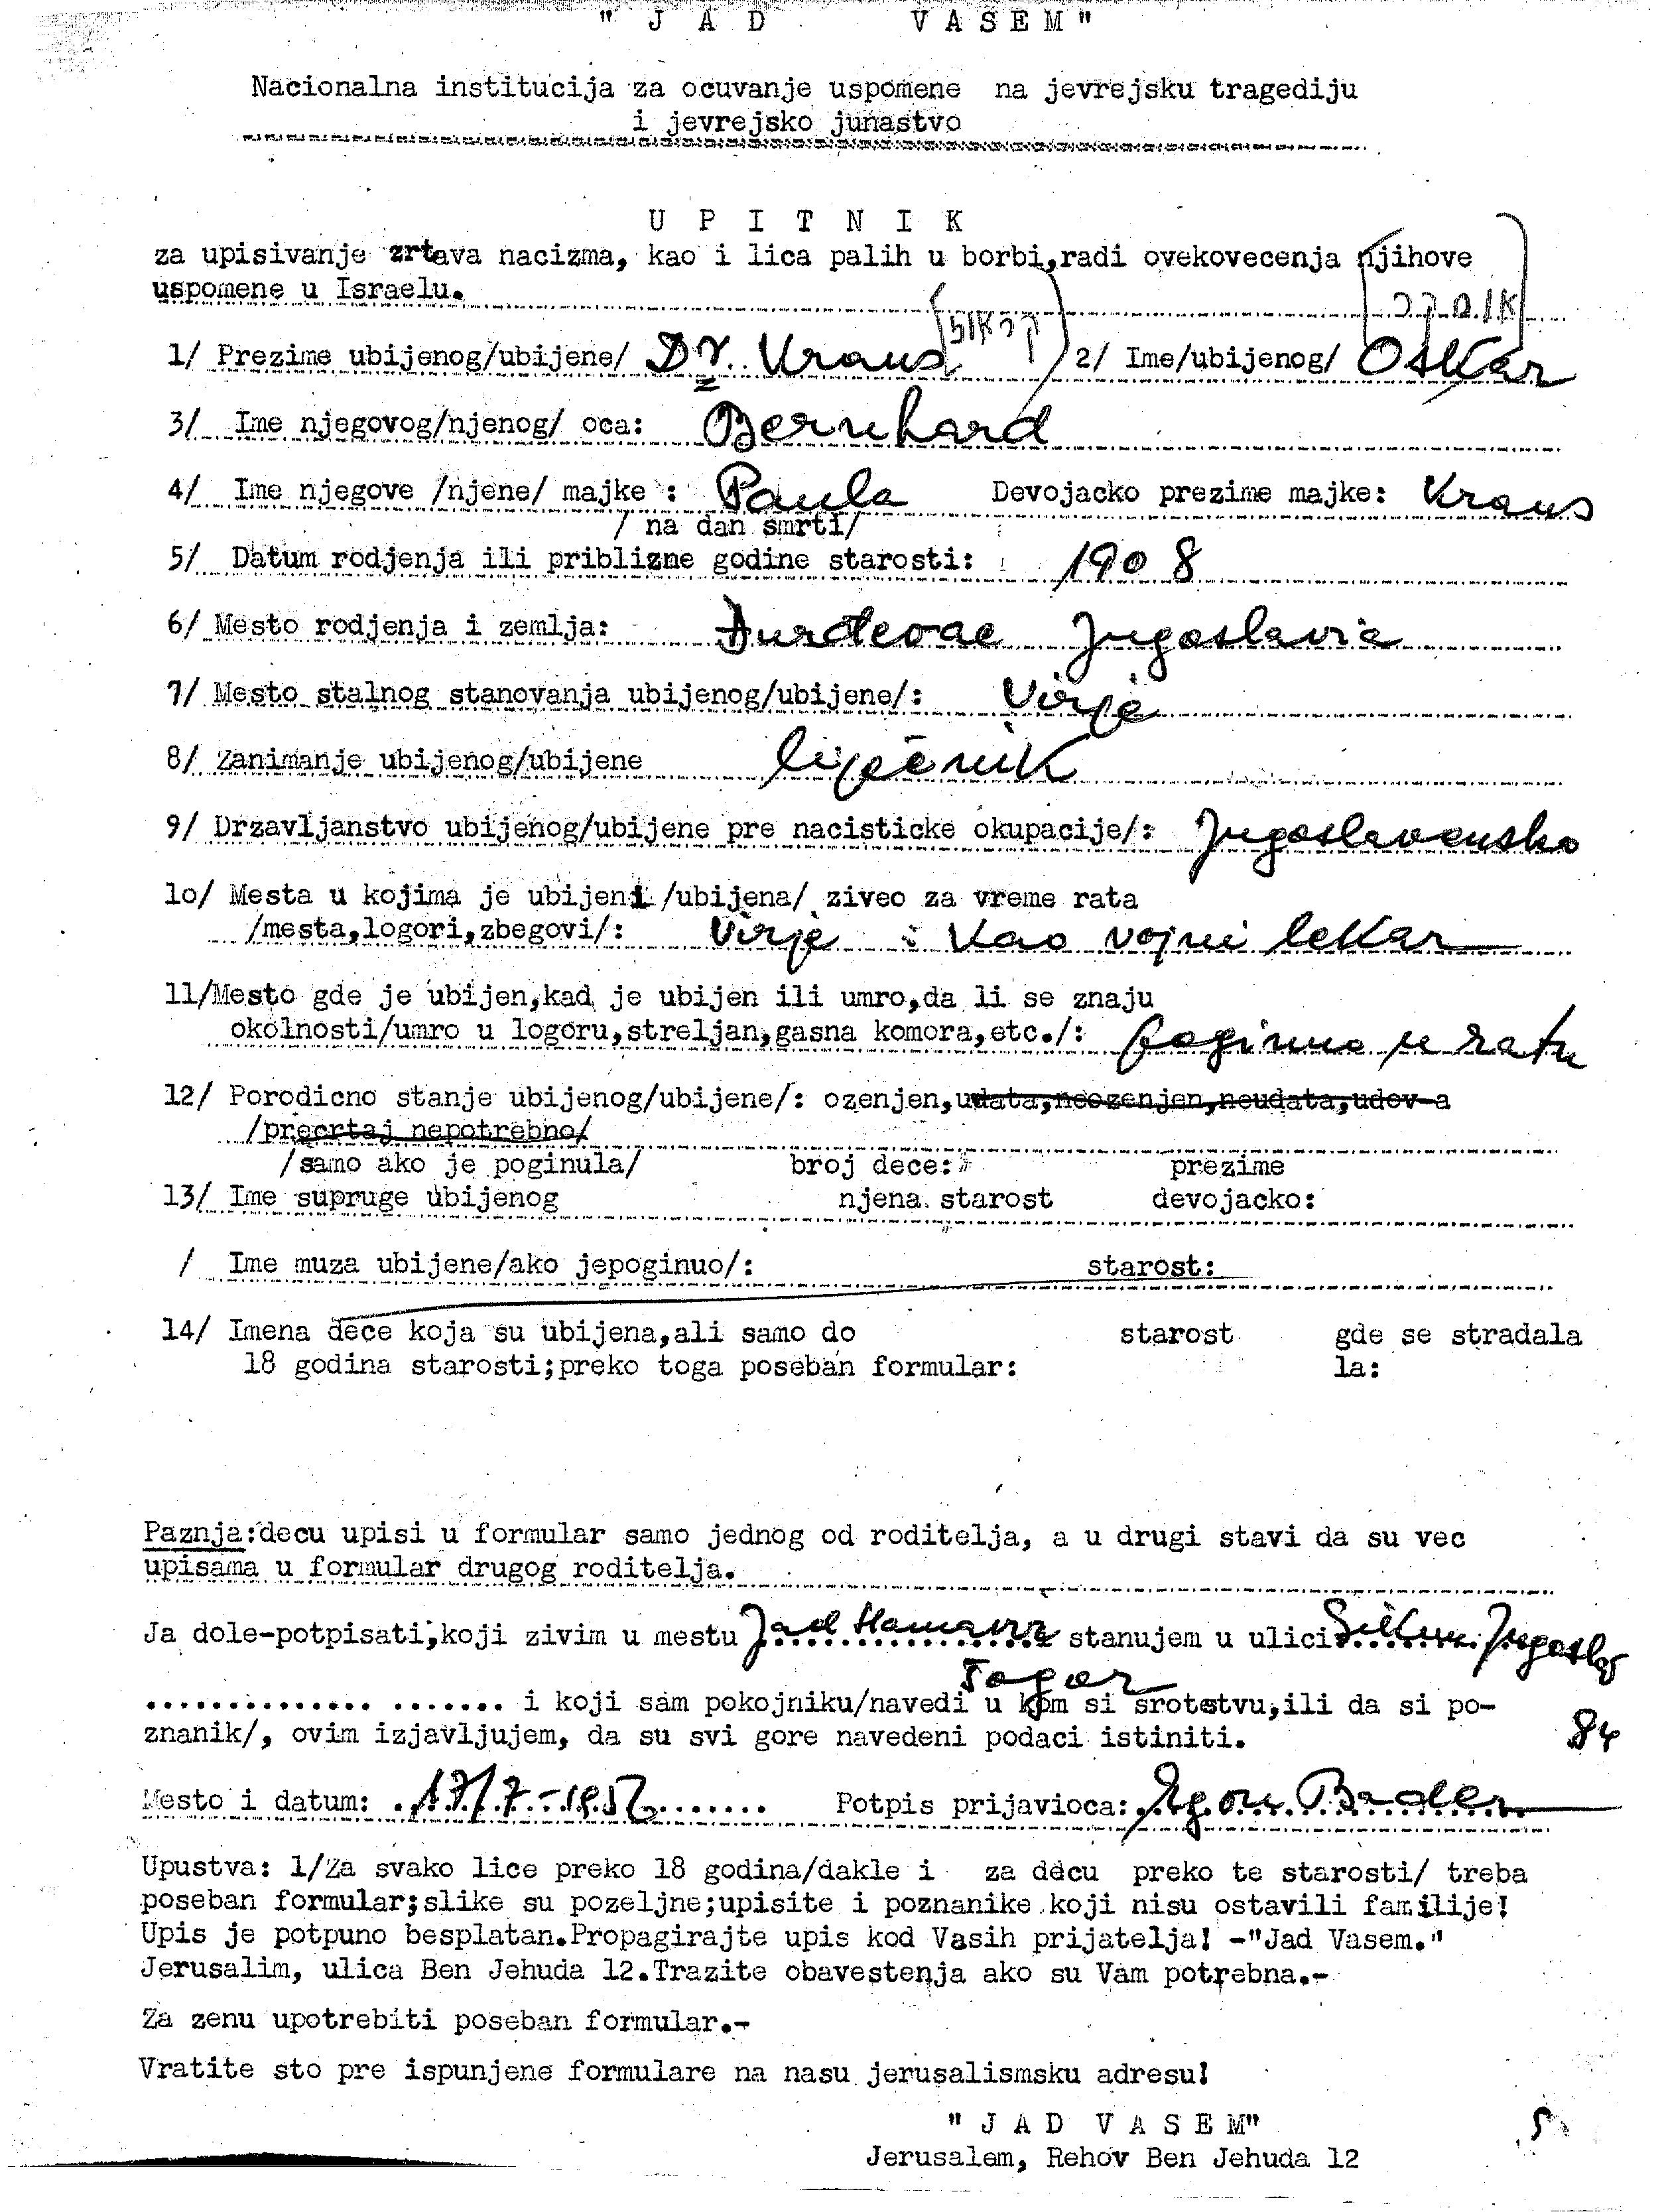 " J A D V A S E M "
Nacionalna institucija za ocuvanje uspomene na jevrejsku tragediju
i jevrejsko junastvo
U P I T N I K
za upisivanje zrtava nacizma, kao i lica palih u borbi,radi ovekovecenja njihove
uspomene u Israelu.
1/ Prezime ubijenog/ubijene/ Dr. Kraus 2/ Ime/ubijenog/ Oskar
3/ Ime njegovog/njenog/ oca: Bernhard
4/ Ime njegove /njene/ majke : Paula Devojacko prezime majke: Kraus
/ na dan smrti/
5/ Datum rodjenja ili priblizne godine starosti: 1908
6/ Mesto rodjenja i zemlja: Đurđevac Jugoslavia
7/ Mesto stalnog stanovanja ubijenog/ubijene/: Virje
8/ Zanimanje ubijenog/ubijene liječnik
9/ Drzavljanstvo ubijenog/ubijene pre nacisticke okupacije/: Jugoslavensko
lo/ Mesta u kojima je ubijeni /ubijena/ ziveo za vreme rata
/mesta,logori,zbegovi/: Virje : Kao vojni lekar
11/Mesto gde je ubijen,kad je ubijen ili umro,da li se znaju
okolnosti/umro u logoru,streljan,gasna komora,etc./: poginuo u ratu
12/ Porodicno stanje ubijenog/ubijene/: ozenjen,udata,neozenjen,neudata,udov-a
/precrtaj nepotrebno/
/samo ako je poginula/ broj dece: prezime
13/ Ime supruge ubijenog njena starost devojacko:
/ Ime muza ubijene/ako jepoginuo/: starost:
14/ Imena dece koja su ubijena,ali samo do starost gde se stradala
18 godina starosti;preko toga poseban formular: la:
Paznja:decu upisi u formular samo jednog od roditelja, a u drugi stavi da su vec
upisama u formular drugog roditelja.
Ja dole-potpisati,koji zivim u mestu Jad stanujem u ulici
.............. ....... i koji sam pokojniku/navedi u kom si srotstvu,ili da si po-
znanik/, ovim izjavljujem, da su svi gore navedeni podaci istiniti.
84
Mesto i datum: 17/7-1957 Potpis prijavioca: Egon Bader
Upustva: 1/Za svako lice preko 18 godina/dakle i za decu preko te starosti/ treba
poseban formular;slike su pozeljne;upisite i poznanike koji nisu ostavili familije!
Upis je potpuno besplatan.Propagirajte upis kod Vasih prijatelja! -"Jad Vasem."
Jerusalim, ulica Ben Jehuda 12.Trazite obavestenja ako su Vam potrebna.-
Za zenu upotrebiti poseban formular.-
Vratite sto pre ispunjene formulare na nasu jerusalismsku adresu!
" J A D V A S E M"
Jerusalem, Rehov Ben Jehuda 12